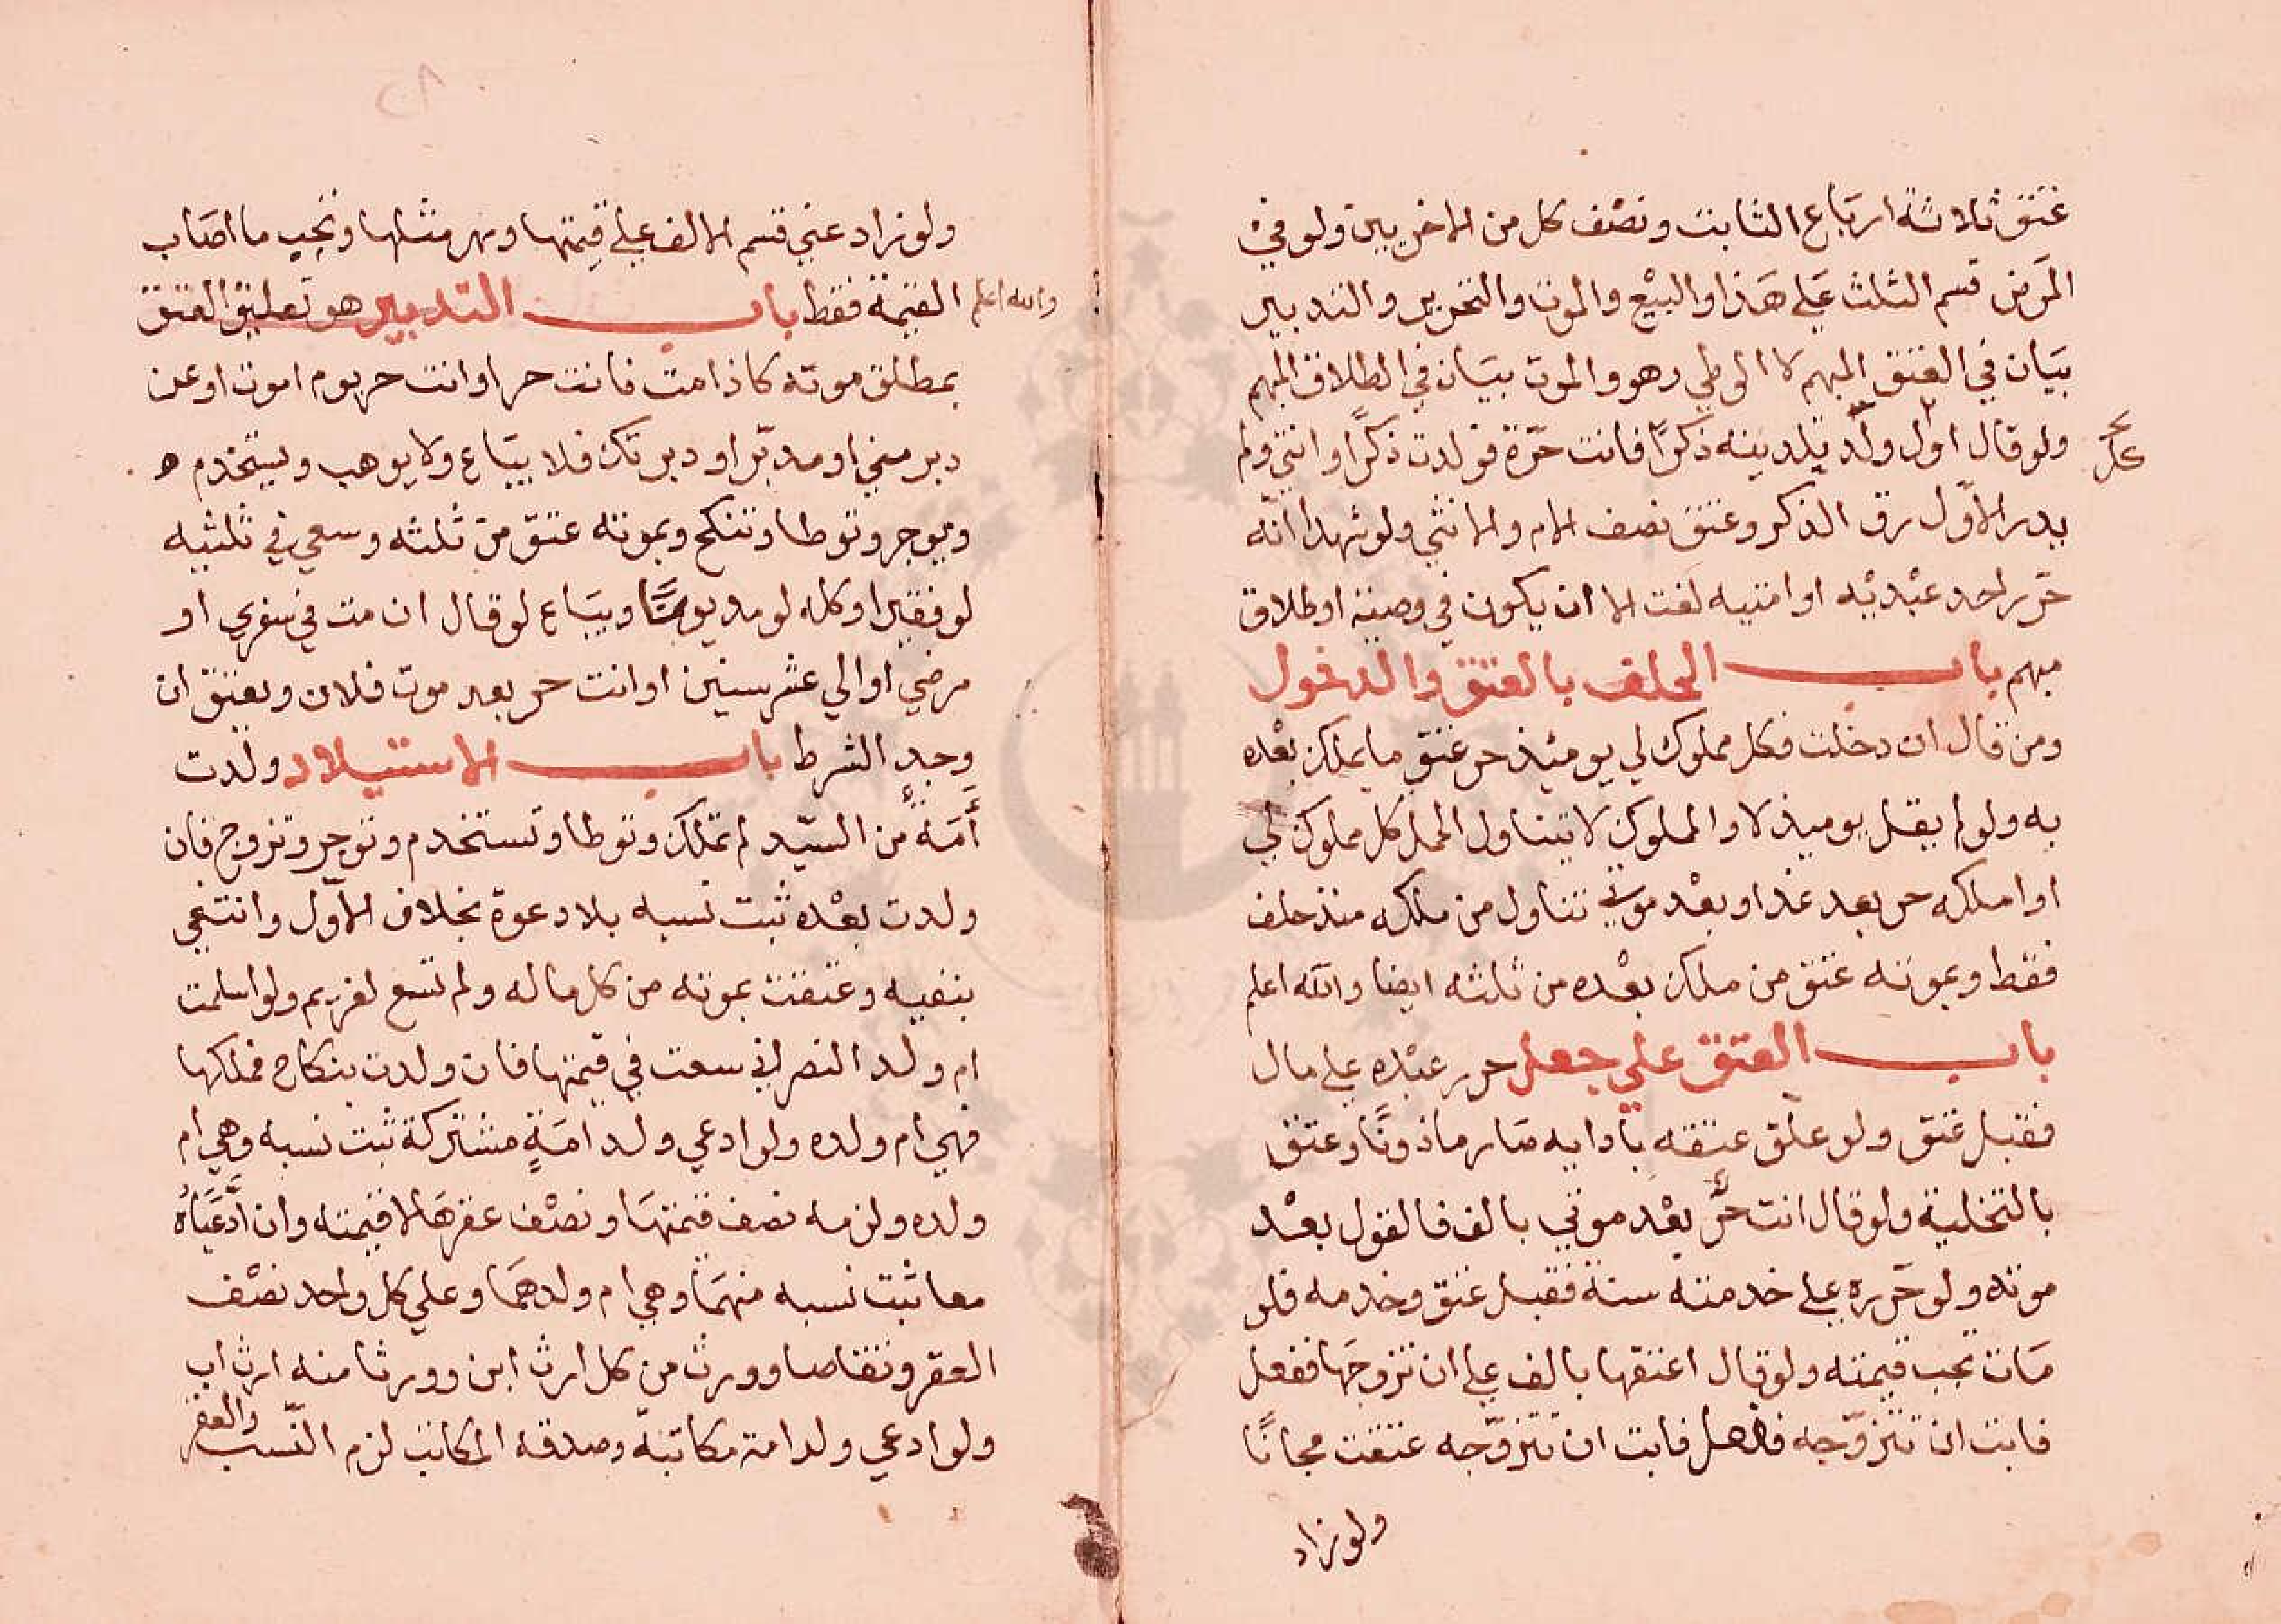 عتق ثلاثة ارباع الثابت ونصف كل من الاخريين ولو في
المرض قسم الثلث علي هذا والبيع والموت والتحرير والتدبير
بيان في العتق المبهم لا الوطي وهو والموت بيان في الطلاق المبهم
ولو قال اول ولد تلدينه ذكرًا فانت حرّة فولدت ذكرًا وانثي ولم
يدر الاوّل رق الذكر وعتق نصف الام والانثي ولو شهدا انّه
حرّر احد عبديْه او امتيه لغت الا ان يكون في وصية او طلاق
مبهم باب الحلف بالعتق والدخول
ومن قال ان دخلت فكل مملوك لي يومئذ حر عتق ما يملك بعْده
به ولو لم يقل يوميذ لا والمملوك لا يتناول الحمل كل مملوك لي
او املكه حر بعد غد او بعْد موتي تناول من ملكه منذ حلف
فقط وبموته عتق من ملك بعْده من ثلثه ايضا والله اعلم
باب العتق علي جعل حرر عبْده علي مال
فقبل عتق ولو علّق عتقه بأدايه صار ماذونًا وعتق
بالتخلية ولو قال انت حرٌّ بعْد موتي بالف فالقول بعْد
موته ولو حَرره علي خدمته سنة فقبل عتق وخدمه فلو
مَات تجب قيمته ولو قال اعتقها بالف علي ان تزوجَها ففعل
فابت ان تتزوّجه فابت ان تتزوّجه عتقت مجانًا
ولو زاد
ولو زاد عني قسم الالف علي قيمتها ومهر مثلها وتجب ما اصَاب
القيمة فقط والله اعلم باب التدبير هو تعليق العتق
بمطلق موته كاذا مت فانت حر او انت حر يوم اموت او عن
دبر مني او مدبّر او دبرتك فلا يبَاع ولا يوهب ويستخدم ه
ويوجر وتوطا وتنكح وبموته عتق من ثلثه وسعي في ثلثيه
لو فقيرا وكله لو مديونًا ويبَاع لو قال ان مت في سفري او
مرضي او الي عشر سنين او انت حر بعد موت فلان ويعتق ان
وجد الشرط باب الاستيلاد ولدت
أَمَةٌ من السيّد لم تملك وتوطا وتستخدم وتوجر وتزوج فان
ولدت بعْده ثبت نسبه بلا دعوة بخلاف الاوّل وانتفي
بنفيه وعتقت بموته من كل ماله ولم تسع لغريم ولو اسلمت
ام ولد النصراني سعت في قيمتها فان ولدت بنكاح فملكها
فهي ام ولده ولو ادعي ولد امَةٍ مشتركة ثبت نسبه وهي ام
ولده ولزمه نصف قيمتهَا ونصْف عقرهَا لا قيمته وان ادَّعَيَاهُ
معا ثبت نسبه منهمَا وهي ام ولدهمَا وعلي كل واحد نصْف
العقر وتقاصا وورث من كل ارث ابن وورثا منه ارث اب
ولو ادعي ولد امة مكاتبه وصدقه المكاتب لزم النّسب والعقر